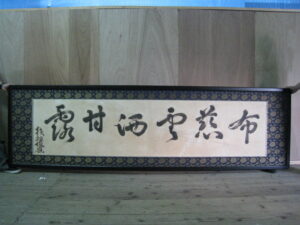 布慈雲洒甘露